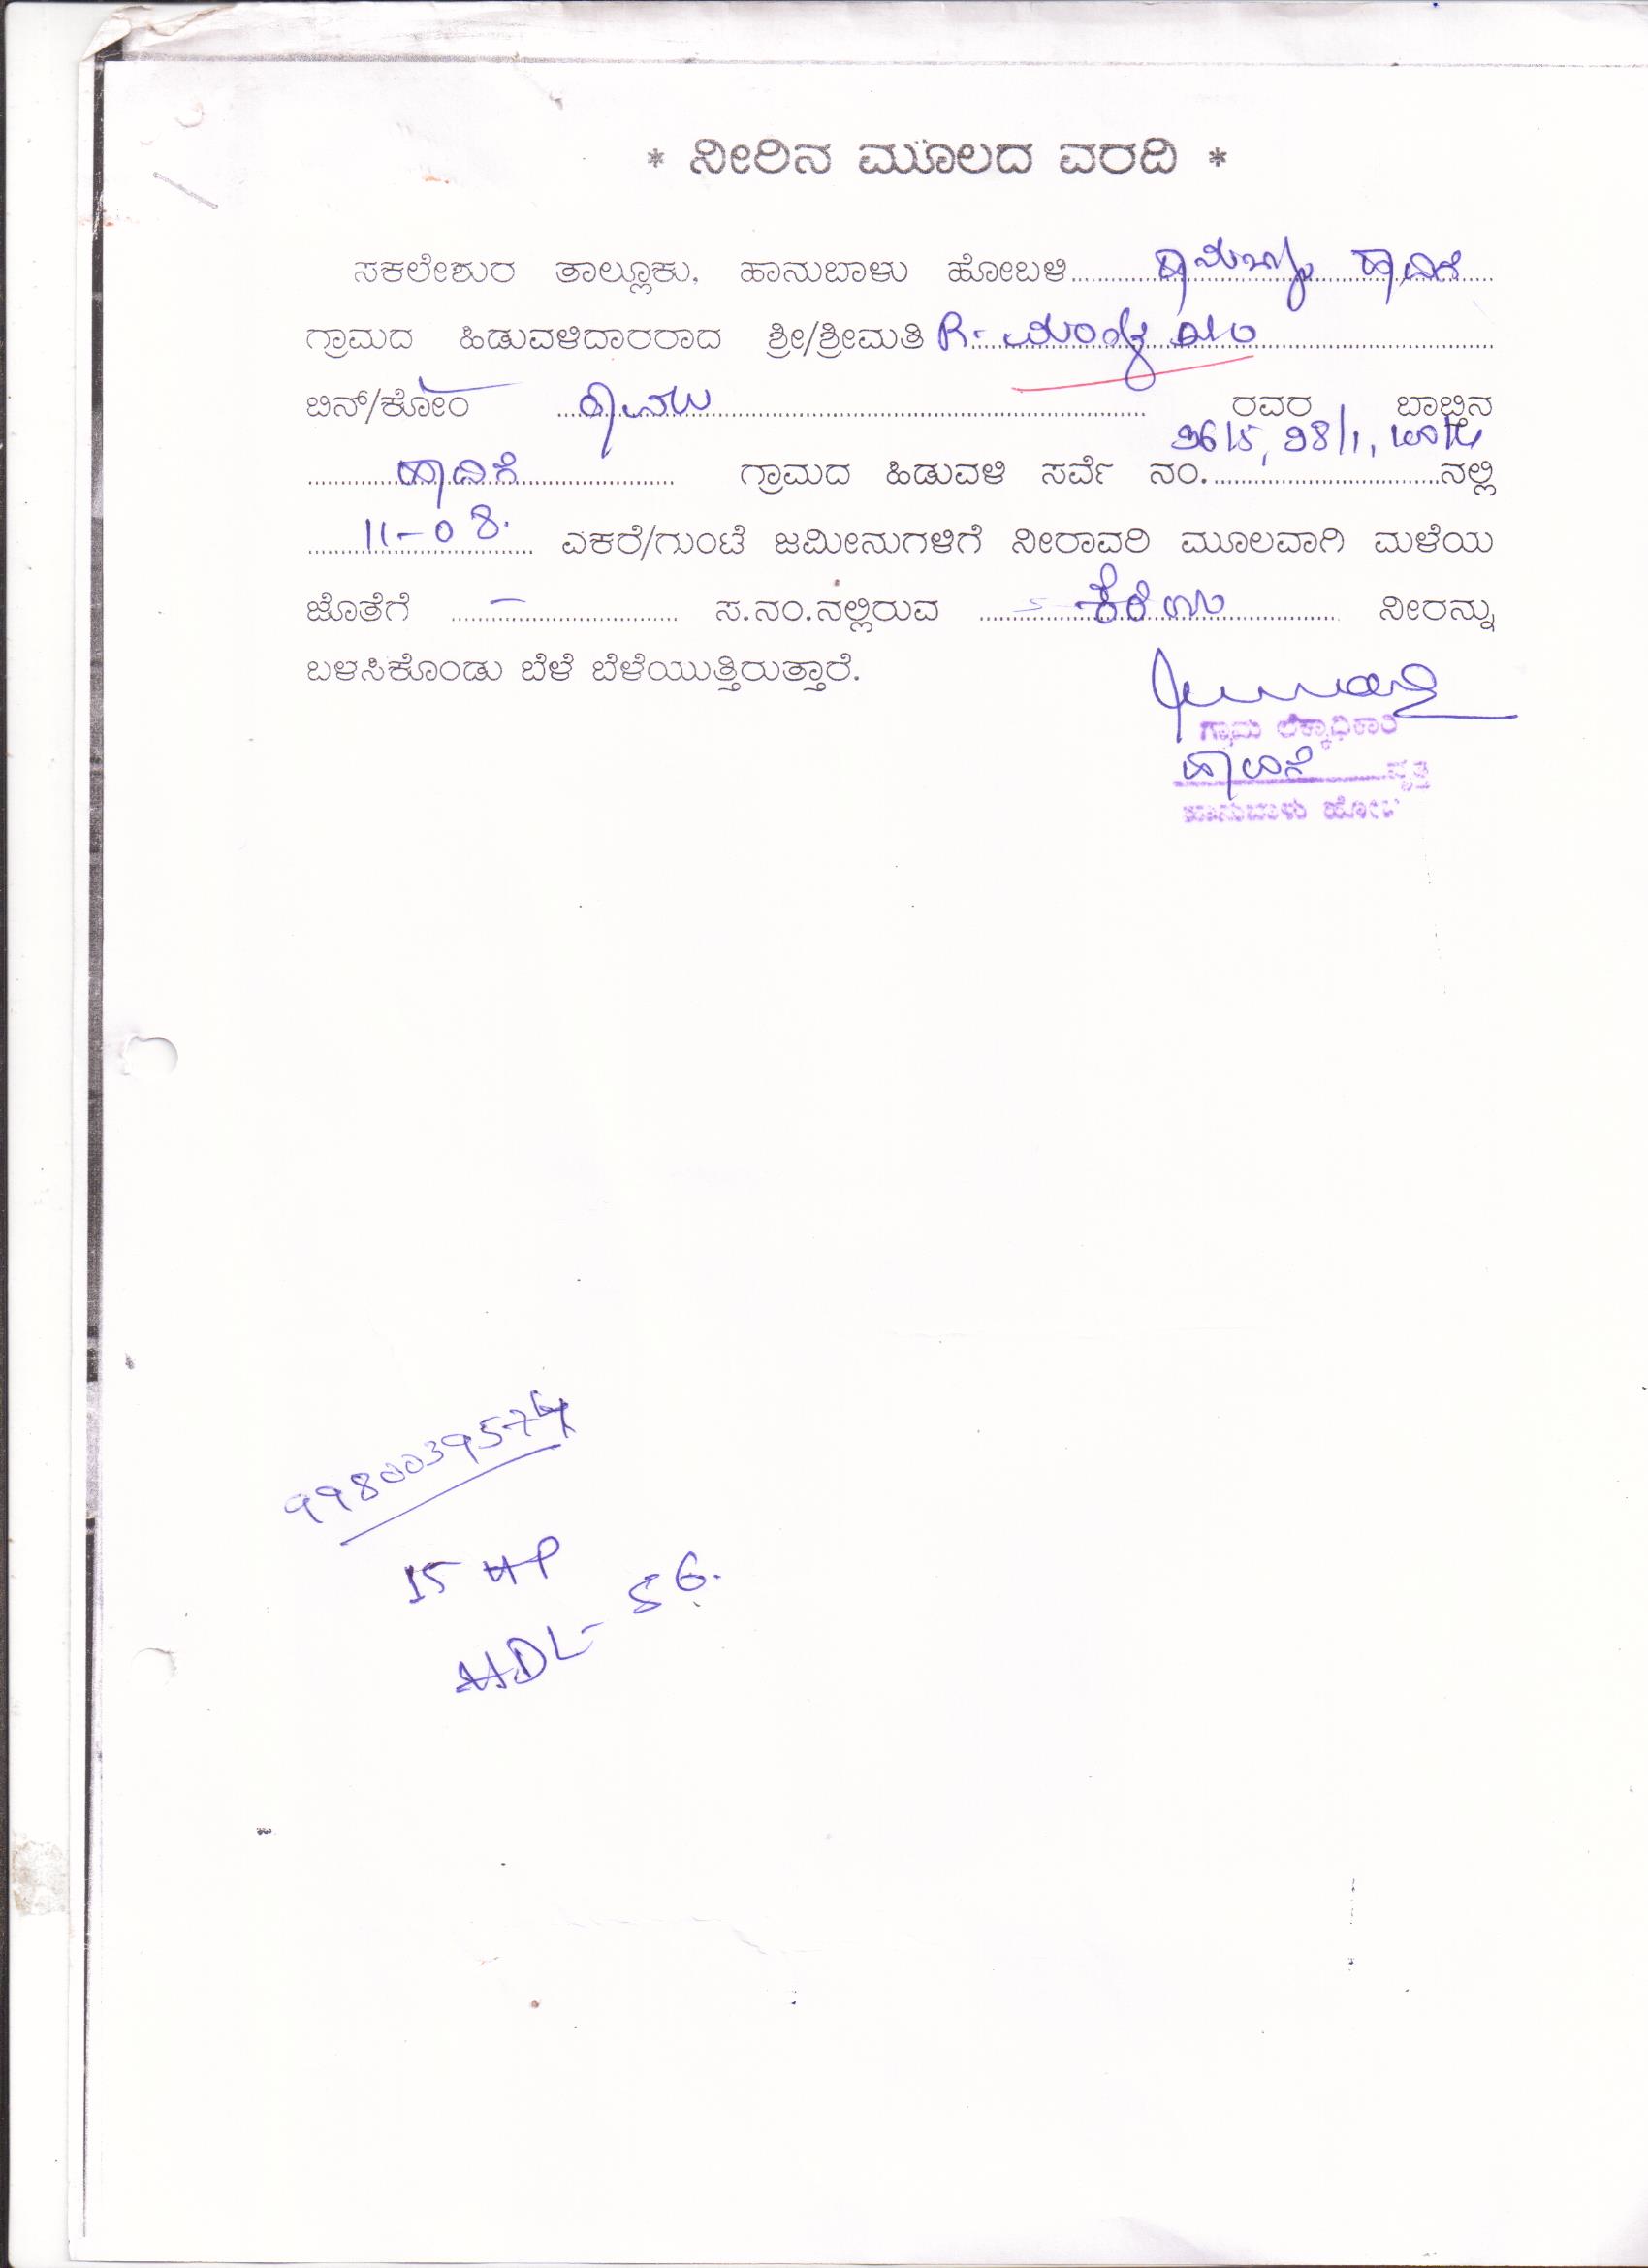 * ನೀರಿನ ಮೂಲದ ವರದಿ *
ಸಕಲೇಶಪುರ ತಾಲ್ಲೂಕು, ಹಾನುಬಾಳು ಹೋಬಳಿ ಹಾದಿಗೆ
ಗ್ರಾಮದ ಹಿಡುವಳಿದಾರರಾದ ಶ್ರೀ/ಶ್ರೀಮತಿ R.
ಬಿನ್/ಕೋಂ ರವರ ಬಾಬ್ತಿನ
ಹಾದಿಗೆ ಗ್ರಾಮದ ಹಿಡುವಳಿ ಸರ್ವೆ ನಂ. 96/5, 98/1, ನಲ್ಲಿ
11-08. ಎಕರೆ/ಗುಂಟೆ ಜಮೀನುಗಳಿಗೆ ನೀರಾವರಿ ಮೂಲವಾಗಿ ಮಳೆಯ
ಜೊತೆಗೆ – ಸ.ನಂ.ನಲ್ಲಿರುವ ಕೆರೆಯ ನೀರನ್ನು
ಬಳಸಿಕೊಂಡು ಬೆಳೆ ಬೆಳೆಯುತ್ತಿರುತ್ತಾರೆ.
ಗ್ರಾಮ ಲೆಕ್ಕಾಧಿಕಾರಿ
ಹಾದಿಗೆ ವೃತ್ತ
ಹಾನುಬಾಳು ಹೋಬ
15 HP
HDL- 56.